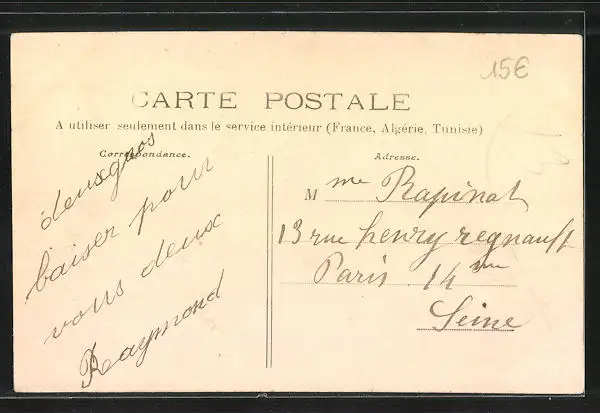 15€
CARTE POSTALE
A utiliser seulement dans le service intérieur (France, Algérie, Tunisie)
Correspondance.
deux gros
baiser pour
vous deux
Raymond
Adresse.
Mme Rapinat
13 rue henry regnault
Paris 14me
Seine